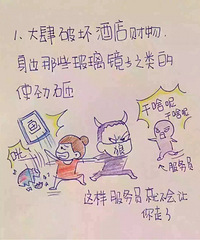 1、大肆破坏酒店财物,
见出那些玻璃镜子之类的
使劲砸
画
狼
干啥呢
干啥呢
服务员
这样服务员就不会让
你走了